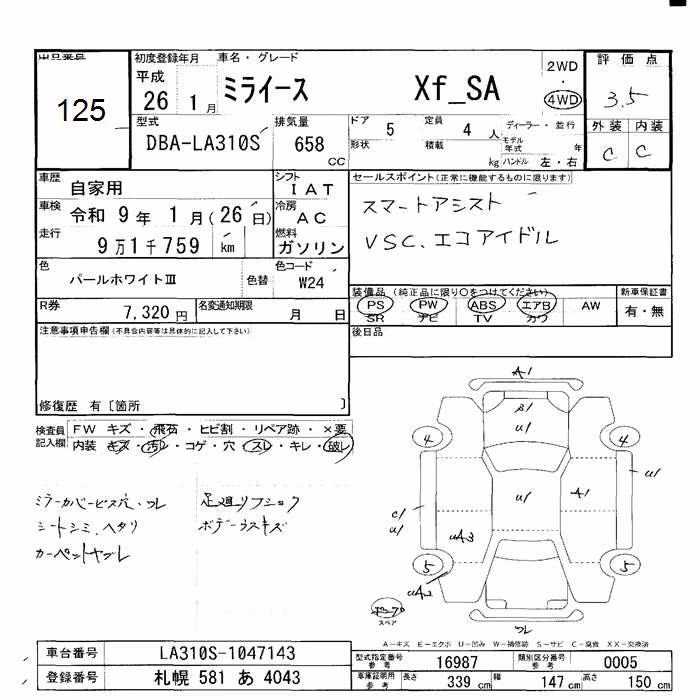 出品番号 初度登録年月 車名・グレード 評価点
125 平成 26 1月 ミライース Xf_SA 2WD・4WD 3.5
型式 排気量 ドア 5 定員 4人 ディーラー・並行 外装 内装
DBA-LA310S 658 CC 形状 積載 kg モデル年式 年 ハンドル 左・右 C C
車歴 自家用 シフト IAT セールスポイント(正常に機能するものに限ります)
車検 令和 9年 1月(26日) 冷房 AC スマートアシスト
走行 9万1千759 km 燃料 ガソリン VSC、エコアイドル
色 パールホワイトⅢ 色替 色コード W24
装備品 (純正品に限り○をつけてください) 新車保証書
R券 7,320円 名変通知期限 月 日 PS PW ABS エアB AW 有・無
SR ナビ TV カワ
注意事項申告欄(不具合内容等は具体的に記入して下さい) 後日品
修復歴 有〔箇所 〕
検査員記入欄 FW キズ・飛石・ヒビ割・リペア跡・×要
内装 キズ・汚れ・コゲ・穴・スレ・キレ・破レ
ミラーカバービス穴、フレ 足廻リフショク
シートシミ、ヘタリ ボデーラスキズ
カーペットヤブレ
A1
B1
U1
4 4
U1 A1 U1
C1
U1
UA3
5 5
UA2
スペア
フレ
A-キズ E-エクボ U-凹み W-補修跡 S-サビ C-腐食 XX-交換済
車台番号 LA310S-1047143 型式指定番号 参考 16987 類別区分番号 参考 0005
登録番号 札幌 581 あ 4043 車庫証明用 参考 長さ 339 cm 幅 147 cm 高さ 150 cm